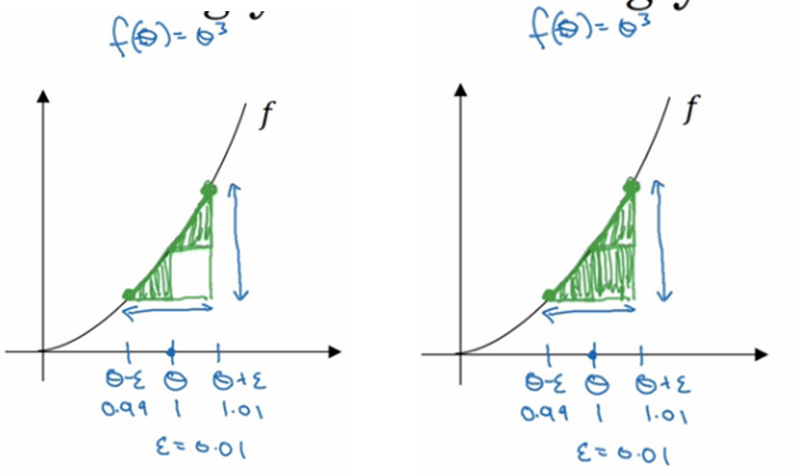 f(θ) = θ³
f
θ-ε θ θ+ε
0.99 1 1.01
ε = 0.01
f(θ) = θ³
f
θ-ε θ θ+ε
0.99 1 1.01
ε = 0.01